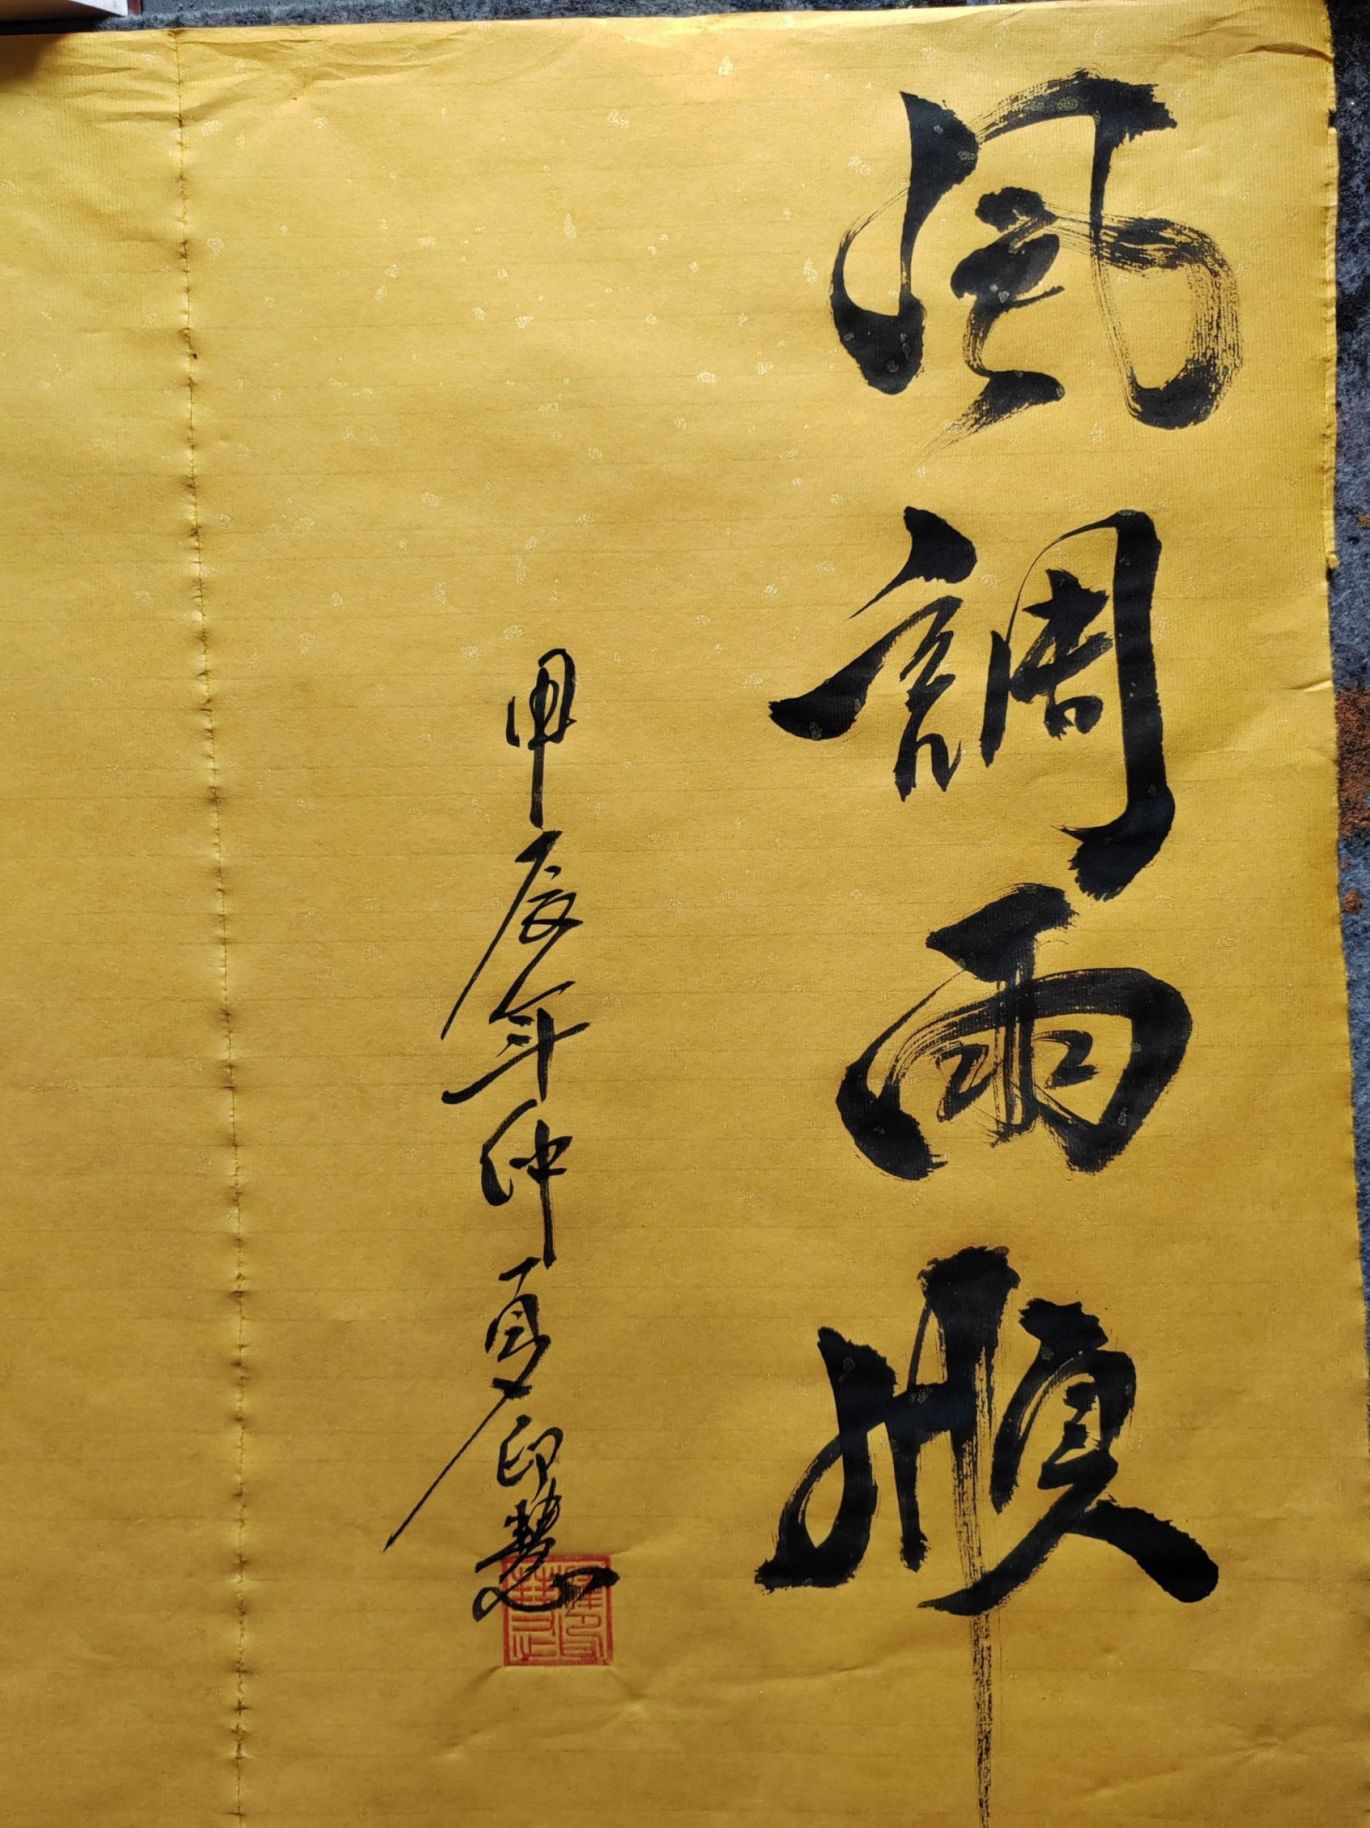 風調雨順
甲辰年仲夏印慧